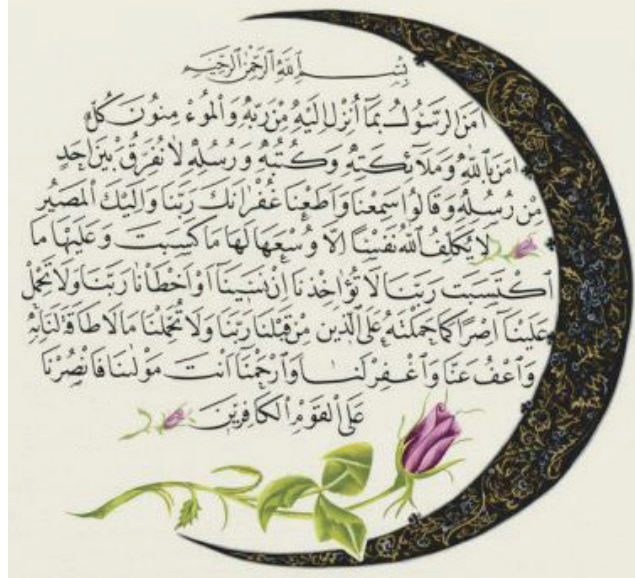 بِسْمِ ٱللَّهِ ٱلرَّحْمٰنِ ٱلرَّحِيمِ
اٰمَنَ ٱلرَّسُولُ بِمَآ أُنْزِلَ إِلَيْهِ مِنْ رَبِّهِ وَٱلْمُوءْ مِنُونَ كُلٌّ
اٰمَنَ بِٱللَّهِ وَمَلآئِكَتِهِ وَكُتُبِهِ وَرُسُلِهِ لَا نُفَرِّقُ بَيْنَ اَحَدٍ
مِنْ رُسُلِهِ وَقَالُوا سَمِعْنَا وَاَطَعْنَا غُفْرَانَكَ رَبَّنَا وَاِلَيْكَ ٱلْمَصِيرُ
لَا يُكَلِّفُ ٱللَّهُ نَفْسًا اِلَّا وُسْعَهَا لَهَا مَا كَسَبَتْ وَعَلَيْهَا مَا
ٱكْتَسَبَتْ رَبَّنَا لَا تُؤَاخِذْنَا اِنْ نَسِينَآ اَوْ اَخْطَأْنَا رَبَّنَا وَلَا تَحْمِلْ
عَلَيْنَآ اِصْرًا كَمَا حَمَلْتَهُ عَلَى ٱلَّذِينَ مِنْ قَبْلِنَا رَبَّنَا وَلَا تُحَمِّلْنَا مَا لَا طَاقَةَ لَنَا بِهِ
وَٱعْفُ عَنَّا وَٱغْفِرْ لَنَا وَٱرْحَمْنَآ اَنْتَ مَوْلٰىنَا فَانْصُرْنَا
عَلَى ٱلْقَوْمِ ٱلْكَافِرِينَ